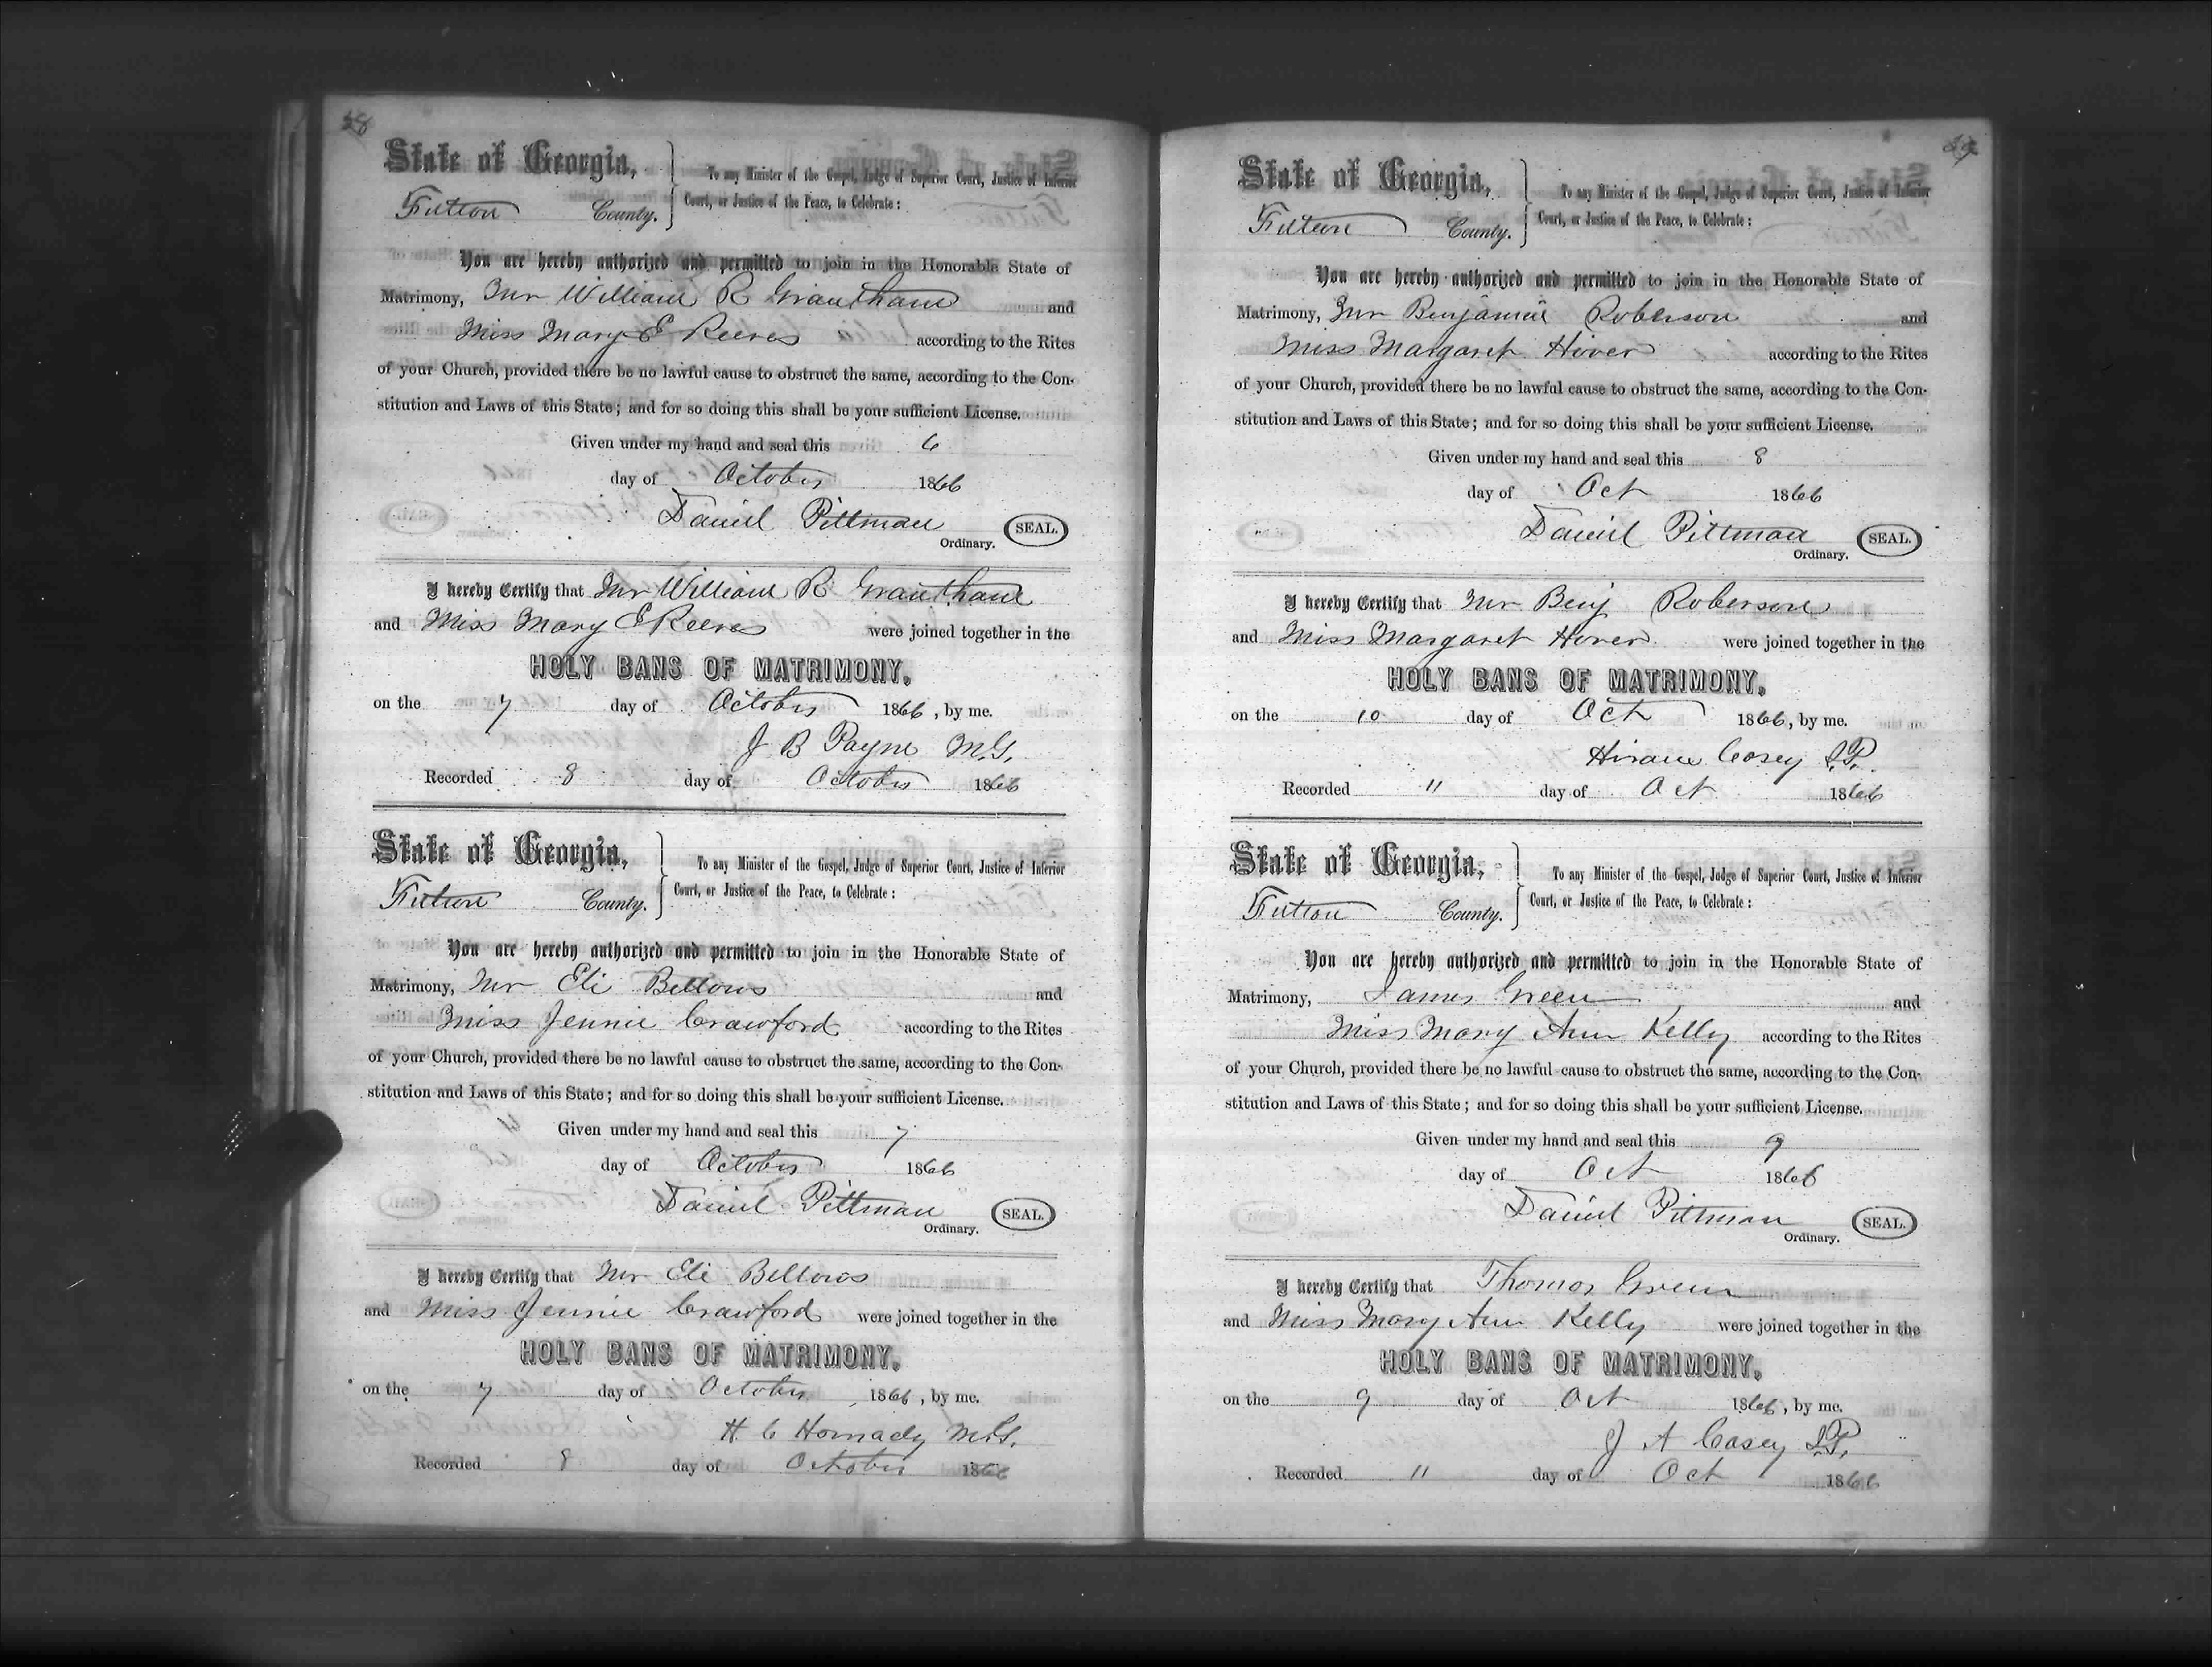 58
State of Georgia,
Fulton County.
To any Minister of the Gospel, Judge of Superior Court, Justice of Inferior
Court, or Justice of the Peace, to Celebrate:
You are hereby authorized and permitted to join in the Honorable State of
Matrimony, Mr William R Grantham and
Miss Mary E Reeves according to the Rites
of your Church, provided there be no lawful cause to obstruct the same, according to the Con-
stitution and Laws of this State; and for so doing this shall be your sufficient License.
Given under my hand and seal this 6
day of October 1866
Daniel Pittman SEAL.
Ordinary.
I hereby Certify that Mr William R Grantham
and Miss Mary E Reeves were joined together in the
HOLY BANS OF MATRIMONY,
on the 7 day of October 1866, by me.
J B Payne M.G.
Recorded 8 day of October 1866
State of Georgia,
Fulton County.
To any Minister of the Gospel, Judge of Superior Court, Justice of Inferior
Court, or Justice of the Peace, to Celebrate:
You are hereby authorized and permitted to join in the Honorable State of
Matrimony, Mr Eli Bellows and
Miss Jennie Crawford according to the Rites
of your Church, provided there be no lawful cause to obstruct the same, according to the Con-
stitution and Laws of this State; and for so doing this shall be your sufficient License.
Given under my hand and seal this 7
day of October 1866
Daniel Pittman SEAL.
Ordinary.
I hereby Certify that Mr Eli Bellows
and Miss Jennie Crawford were joined together in the
HOLY BANS OF MATRIMONY,
on the 7 day of October, 1866, by me.
H C Hornady M.G.
Recorded 8 day of October 1866
State of Georgia,
Fulton County.
To any Minister of the Gospel, Judge of Superior Court, Justice of Inferior
Court, or Justice of the Peace, to Celebrate:
You are hereby authorized and permitted to join in the Honorable State of
Matrimony, Mr Benjamin Roberson and
Miss Margaret Hover according to the Rites
of your Church, provided there be no lawful cause to obstruct the same, according to the Con-
stitution and Laws of this State; and for so doing this shall be your sufficient License.
Given under my hand and seal this 8
day of Oct 1866
Daniel Pittman SEAL.
Ordinary.
I hereby Certify that Mr Benj Roberson
and Miss Margaret Hover were joined together in the
HOLY BANS OF MATRIMONY,
on the 10 day of Oct 1866, by me.
Hiram Casey J.P.
Recorded 11 day of Oct 1866
State of Georgia,
Fulton County.
To any Minister of the Gospel, Judge of Superior Court, Justice of Inferior
Court, or Justice of the Peace, to Celebrate:
You are hereby authorized and permitted to join in the Honorable State of
Matrimony, James Green and
Miss Mary Ann Kelly according to the Rites
of your Church, provided there be no lawful cause to obstruct the same, according to the Con-
stitution and Laws of this State; and for so doing this shall be your sufficient License.
Given under my hand and seal this 9
day of Oct 1866
Daniel Pittman SEAL.
Ordinary.
I hereby Certify that Thomas Green
and Miss Mary Ann Kelly were joined together in the
HOLY BANS OF MATRIMONY,
on the 9 day of Oct 1866, by me.
J A Casey J.P.
Recorded 11 day of Oct 1866